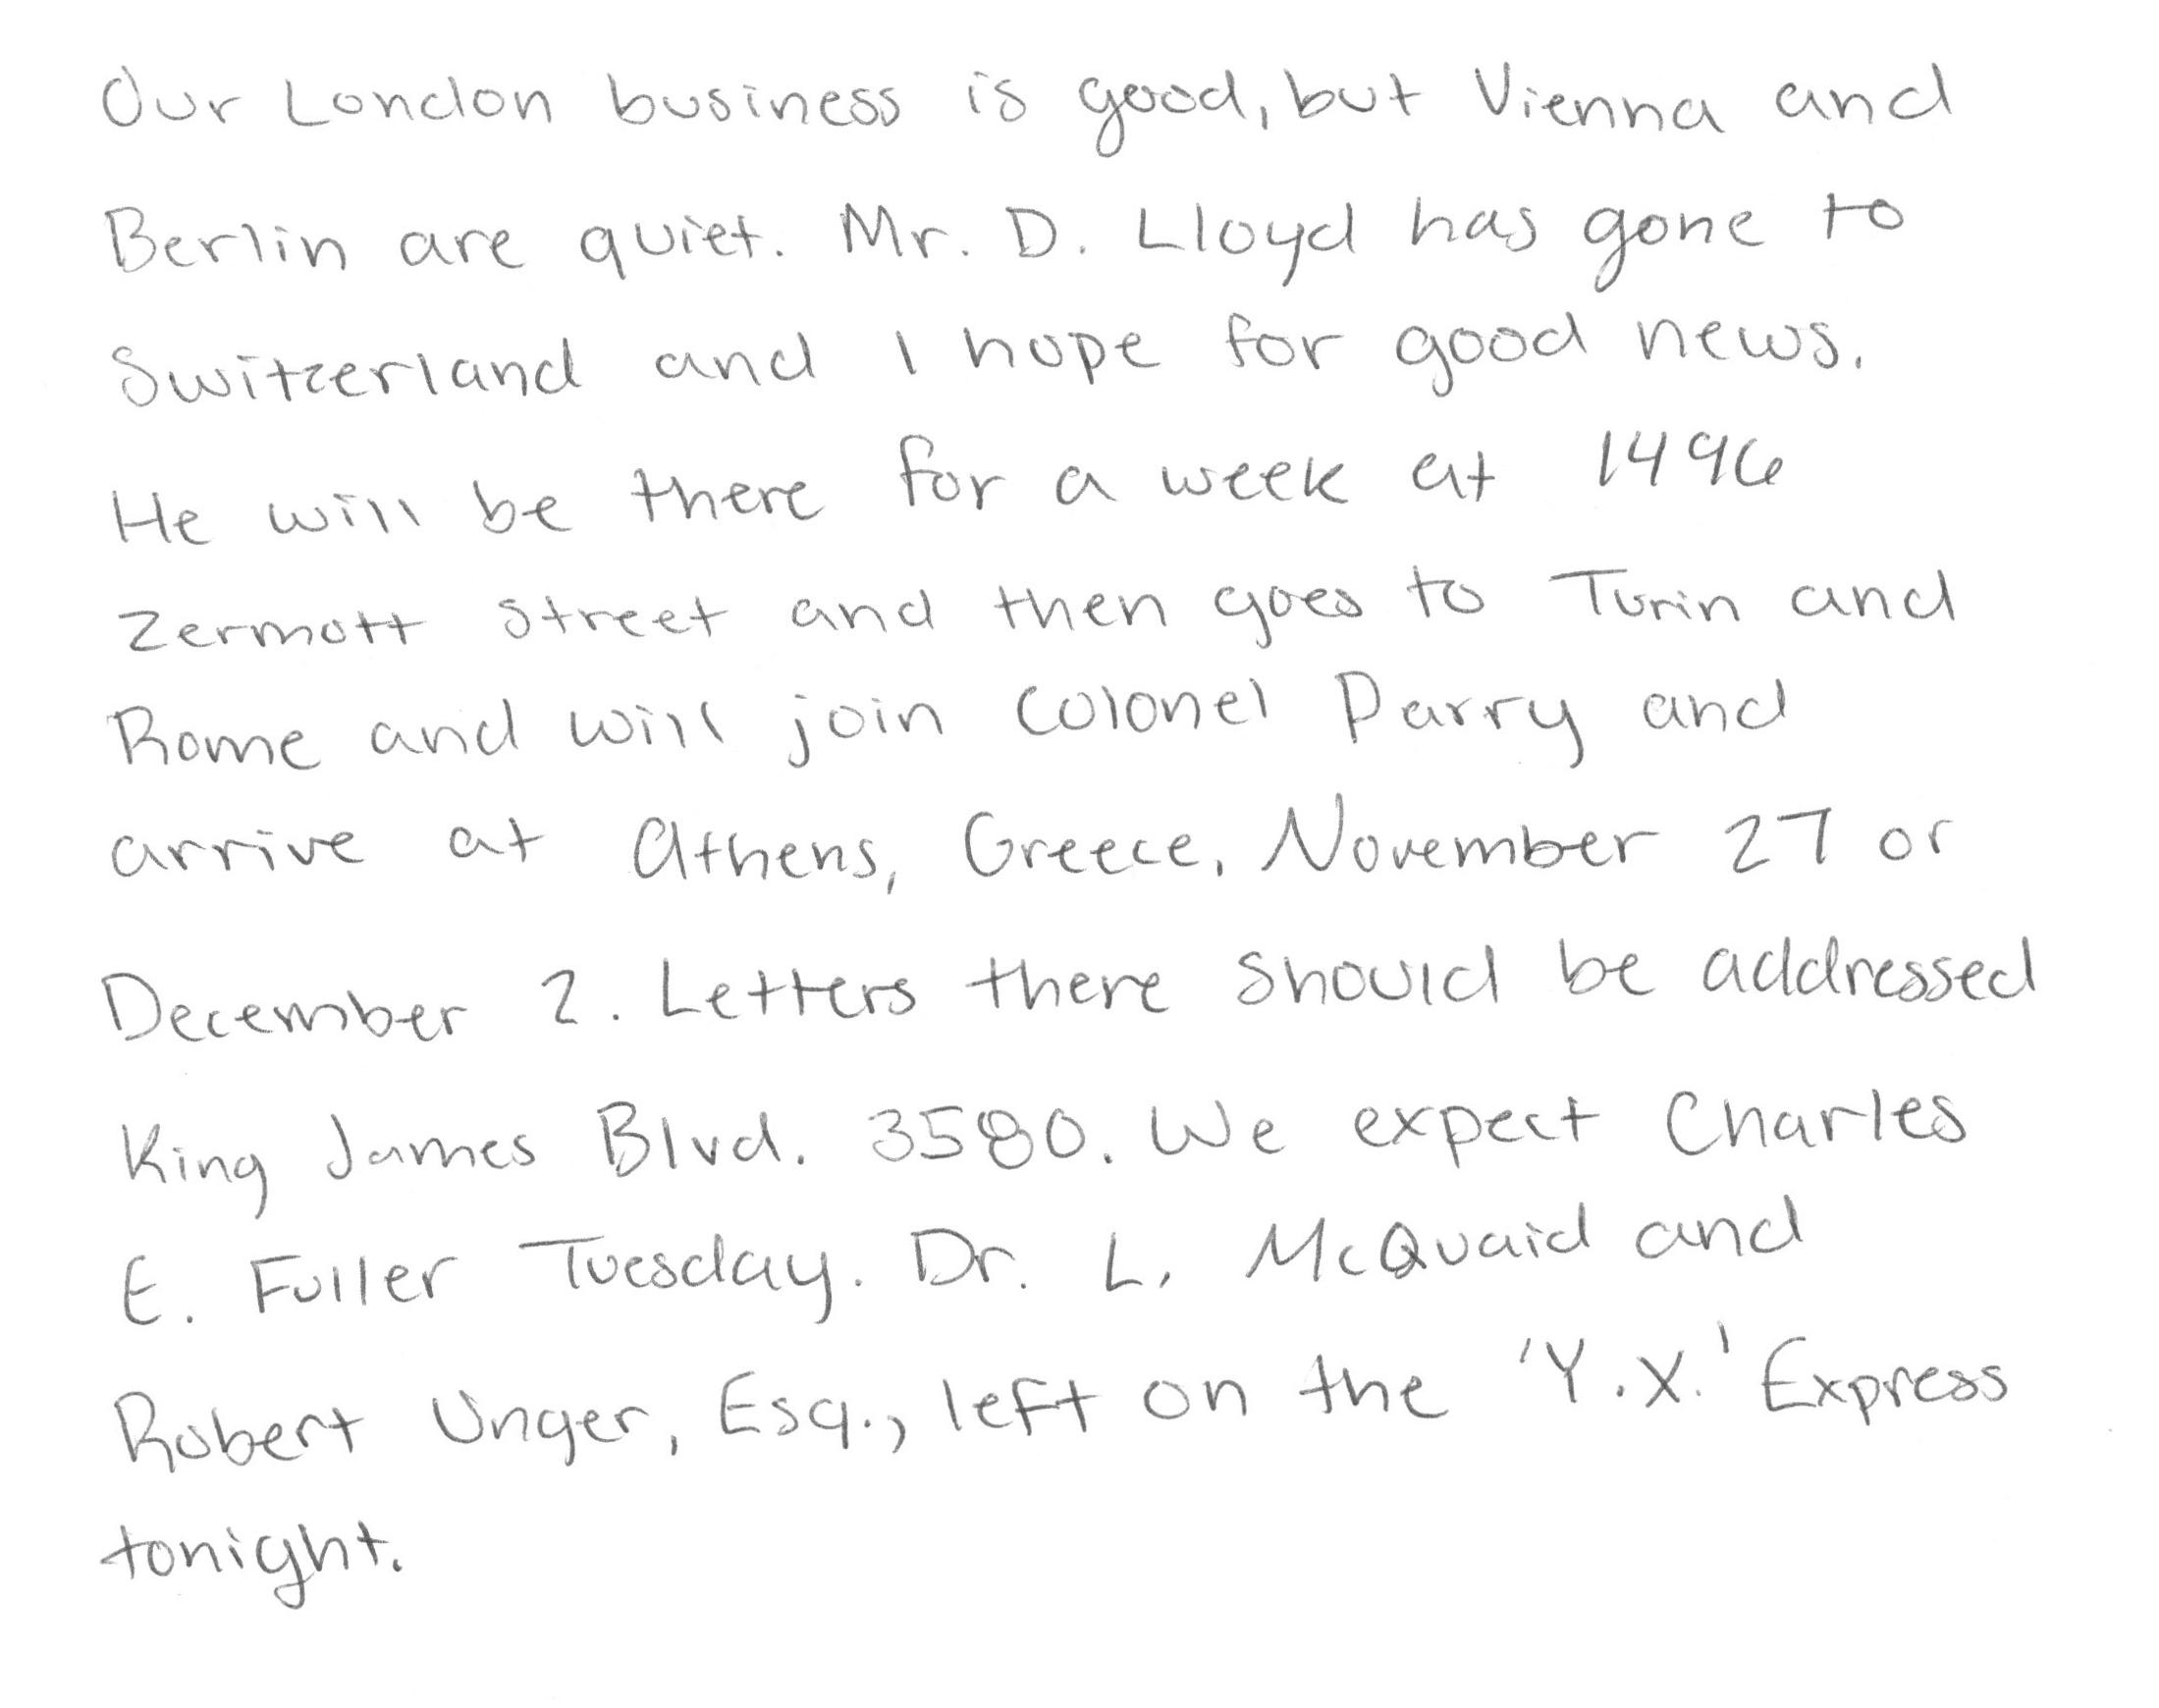 Our London business is good, but Vienna and
Berlin are quiet. Mr. D. Lloyd has gone to
Switzerland and I hope for good news.
He will be there for a week at 1496
Zermott Street and then goes to Turin and
Rome and will join Colonel Parry and
arrive at Athens, Greece, November 27 or
December 2. Letters there should be addressed
King James Blvd. 3580. We expect Charles
E. Fuller Tuesday. Dr. L. McQuaid and
Robert Unger, Esq., left on the 'Y.X.' Express
tonight.